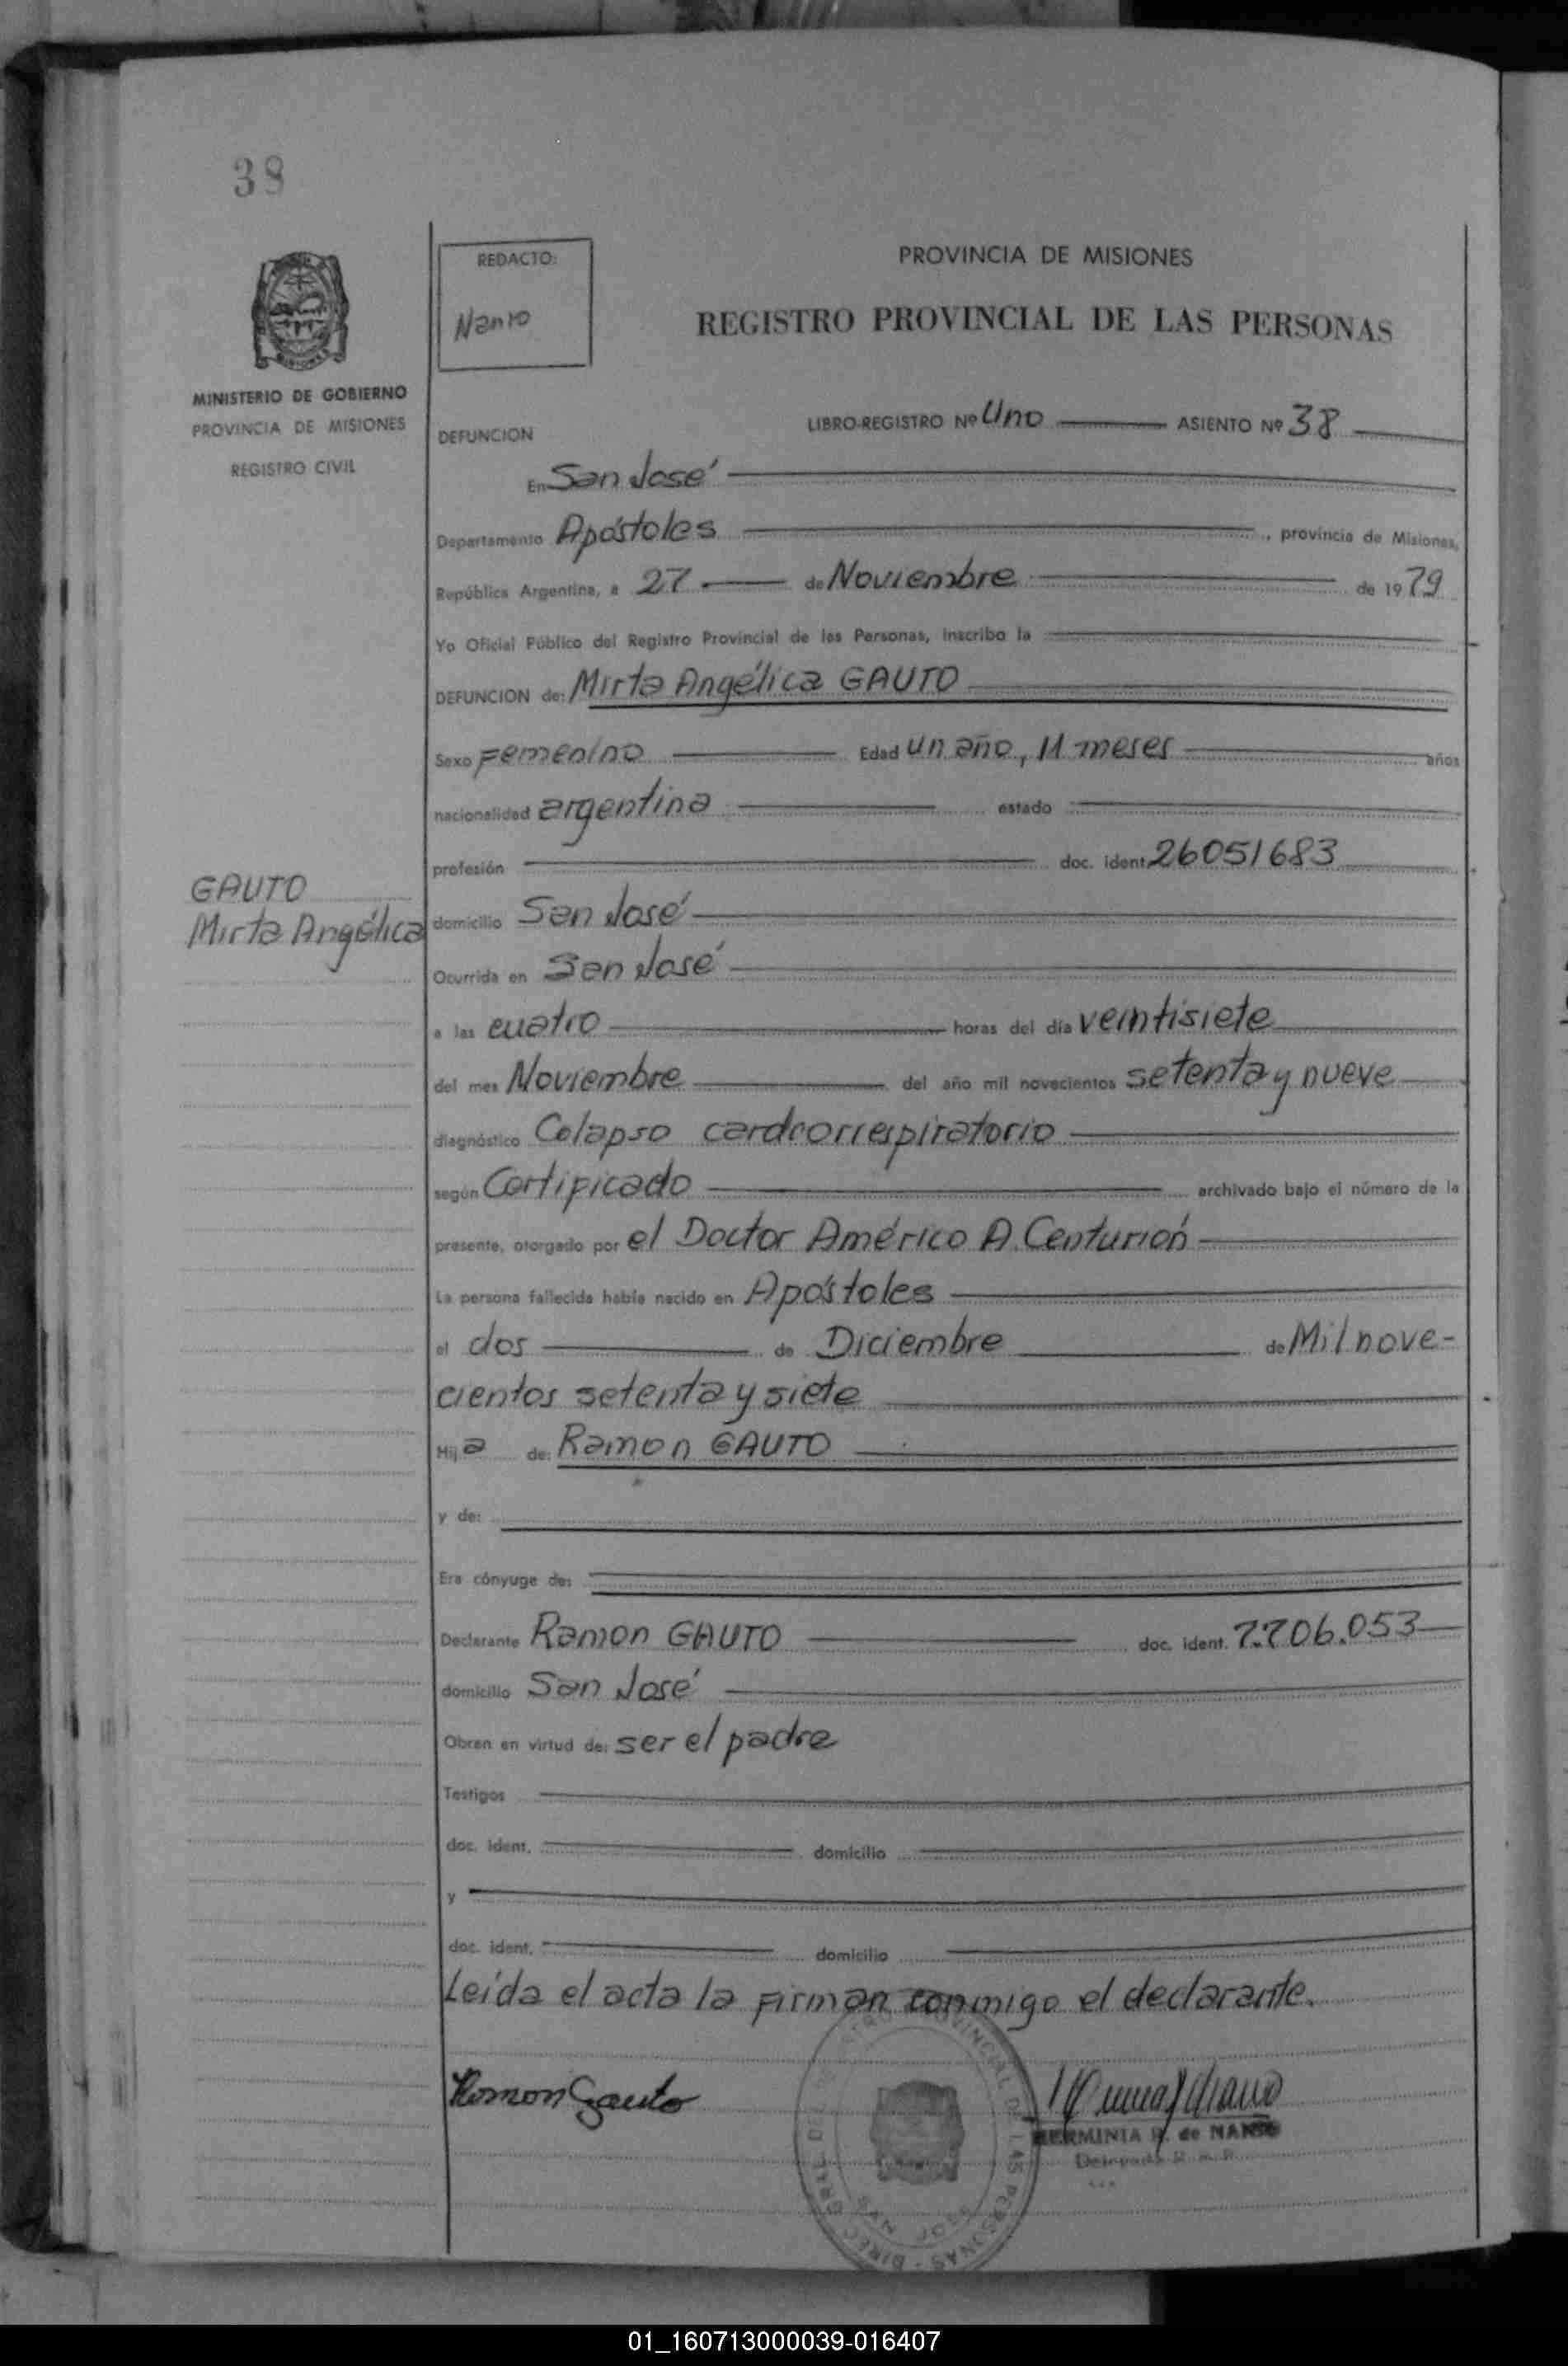 38
REDACTO:
Nanio
PROVINCIA DE MISIONES
REGISTRO PROVINCIAL DE LAS PERSONAS
MINISTERIO DE GOBIERNO
PROVINCIA DE MISIONES
REGISTRO CIVIL
DEFUNCION
LIBRO-REGISTRO Nº Uno ASIENTO Nº 38
En San José
Departamento Apóstoles, provincia de Misiones,
República Argentina, a 27 de Noviembre de 1979
Yo Oficial Público del Registro Provincial de las Personas, inscribo la
DEFUNCION de: Mirta Angélica GAUTO
Sexo Femenino Edad un año, 11 meses años
nacionalidad argentina estado
profesión doc. ident. 26051683
GAUTO
Mirta Angélica
domicilio San José
Ocurrida en San José
a las cuatro horas del día veintisiete
del mes Noviembre del año mil novecientos setenta y nueve
diagnóstico Colapso cardiorrespiratorio
según Certificado archivado bajo el número de la
presente, otorgado por el Doctor Américo A. Centurión
La persona fallecida había nacido en Apóstoles
el dos de Diciembre de Mil nove-
cientos setenta y siete
Hija de: Ramon GAUTO
y de:
Era cónyuge de:
Declarante Ramon GAUTO doc. ident. 7.706.053
domicilio San José
Obran en virtud de: ser el padre
Testigos
doc. ident. domicilio
y
doc. ident. domicilio
Leída el acta la firman conmigo el declarante.
Ramon Gauto
HERMINIA de NANIO
01_160713000039-016407